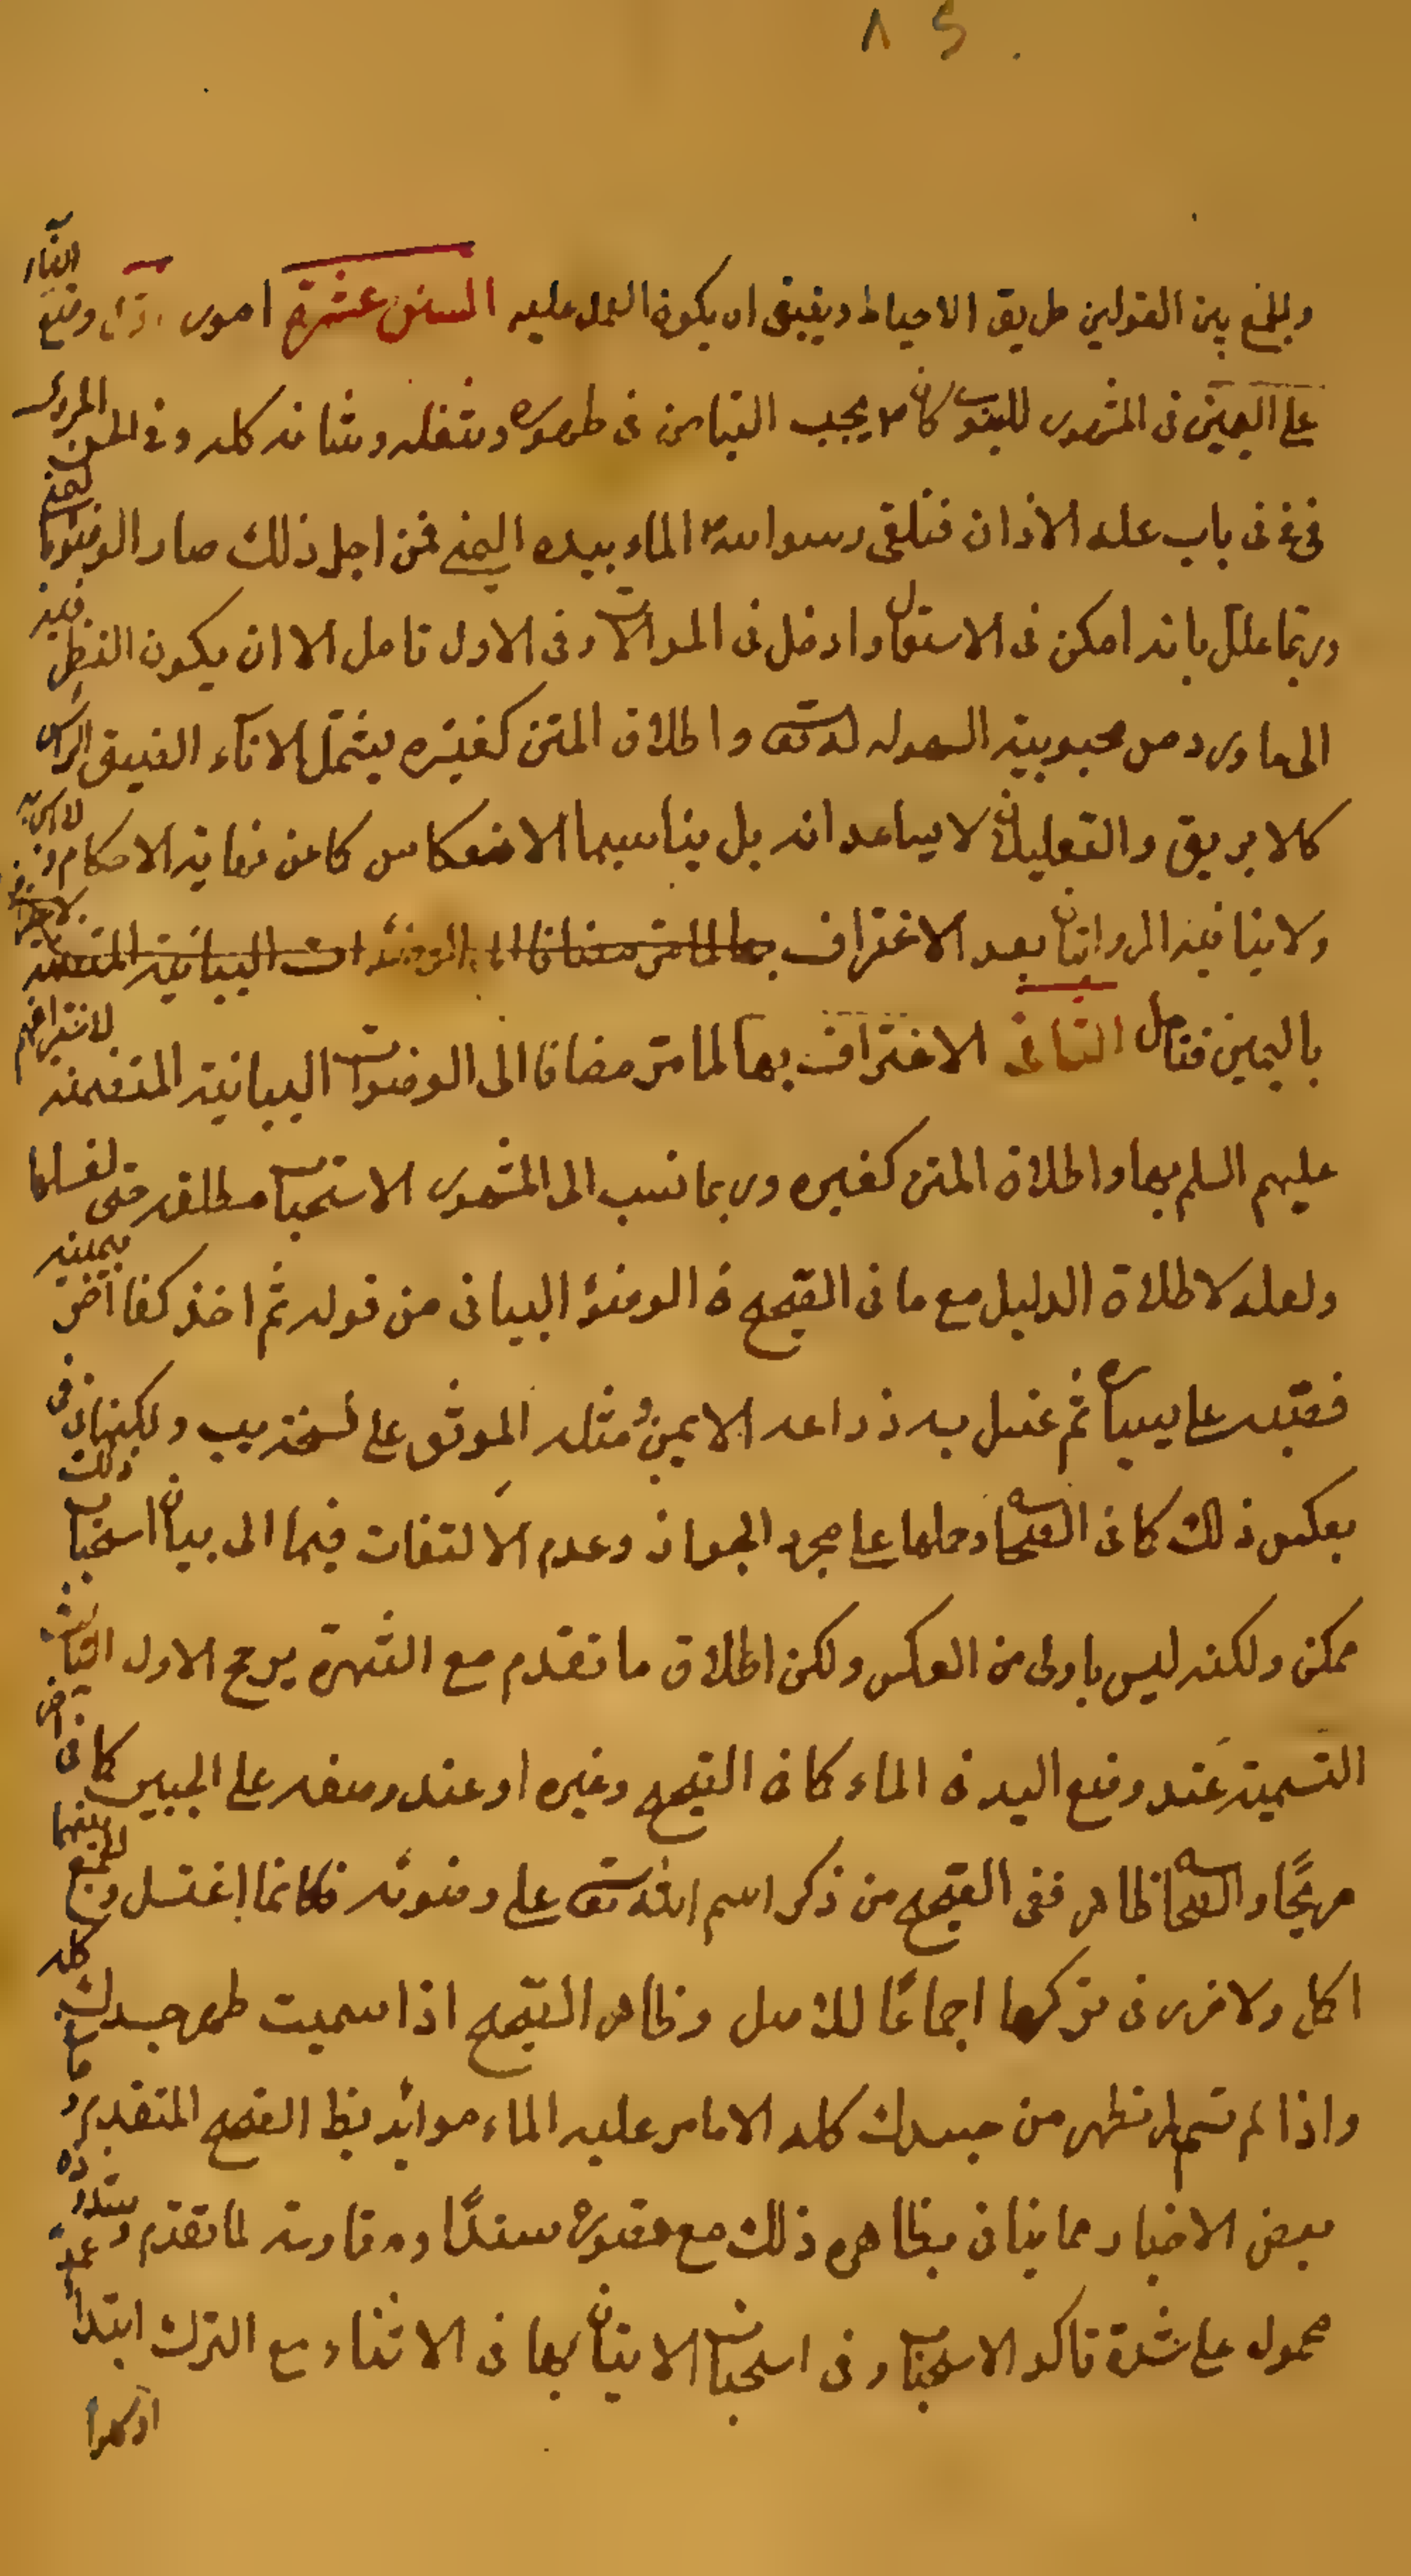 ٨٥
وللجمع بين القولين طريق الاحتياط وينبغى ان يكون العمل عليه السنن عشرة امور اول وضع الاناء
على اليمين فى المشهور للنبوى كان ص يحب التيامن فى طهوره وتنعله وشانه كله وفى الحسن المروى
فى باب علة الاذان فتلقى رسول الله ص الماء بيده اليمنى فمن اجل ذلك صار الوضوء باليمنى
وربما علل بانه امكن فى الاستعمال وادخل فى الموالات وفى الاول تامل الا ان يكون النظر فيه
الى ما ورد من محبوبية السهولة لله تعالى واطلاق المتن كغيره يشتمل الاناء الضيق الراس
كالابريق والتعليلان لا يساعدانه بل يناسبهما الانعكاس كما عن نهاية الاحكام
ولا ينافيه الروايتان بعد الاغتراف بها لما مر مضافا الى الوضوءات البيانية المتضمنة
باليمين فتامل الثانى الاغتراف بها لما مر مضافا الى الوضوءات البيانية المتضمنة لاغترافهم
عليهم السلم بها واطلاق المتن كغيره وربما نسب الى المشهور الاستحباب مطلقه حتى لغسلها
ولعله لاطلاق الدليل مع ما فى الصحيح فى الوضوء البيانى من قوله ثم اخذ كفا اخر بيمينه
فصبه على يساره ثم غسل به ذراعه الايمن ومثله الموثق على نسخة يب ولكنهما فى
بعكس ذلك كما فى الصحاح وحملها على مجرد الجواز وعدم الالتفات فيها الى بيان استحباب ذلك
ممكن ولكنه ليس باولى من العكس ولكن اطلاق ما تقدم مع الشهرة يرجح الاول الثالث
التسمية عند وضع اليد فى الماء كما فى الصحيح وغيره او عند وضعه على الجبين كما فى اخر
صريحا والصحاح ظاهر ففى الصحيح من ذكر اسم الله تعالى على وضوئه فكانما اغتسل والجمع بينهما
اكمل ولا ضرر فى تركها اجماعا للاصل وظاهر الصحيح اذا سميت طهر جسدك كله
واذا لم تسم لم تطهر من جسدك كله الا ما مر عليه الماء موافق بظ الصحيح المتقدم وما
ببعض الاخبار مما ينافى بظاهره ذلك مع قصوره سندا ومقاومة لما تقدم
محمول على شدة تاكد الاستحباب وفى استحباب الاتيان بها فى الاثناء مع الترك ابتداء